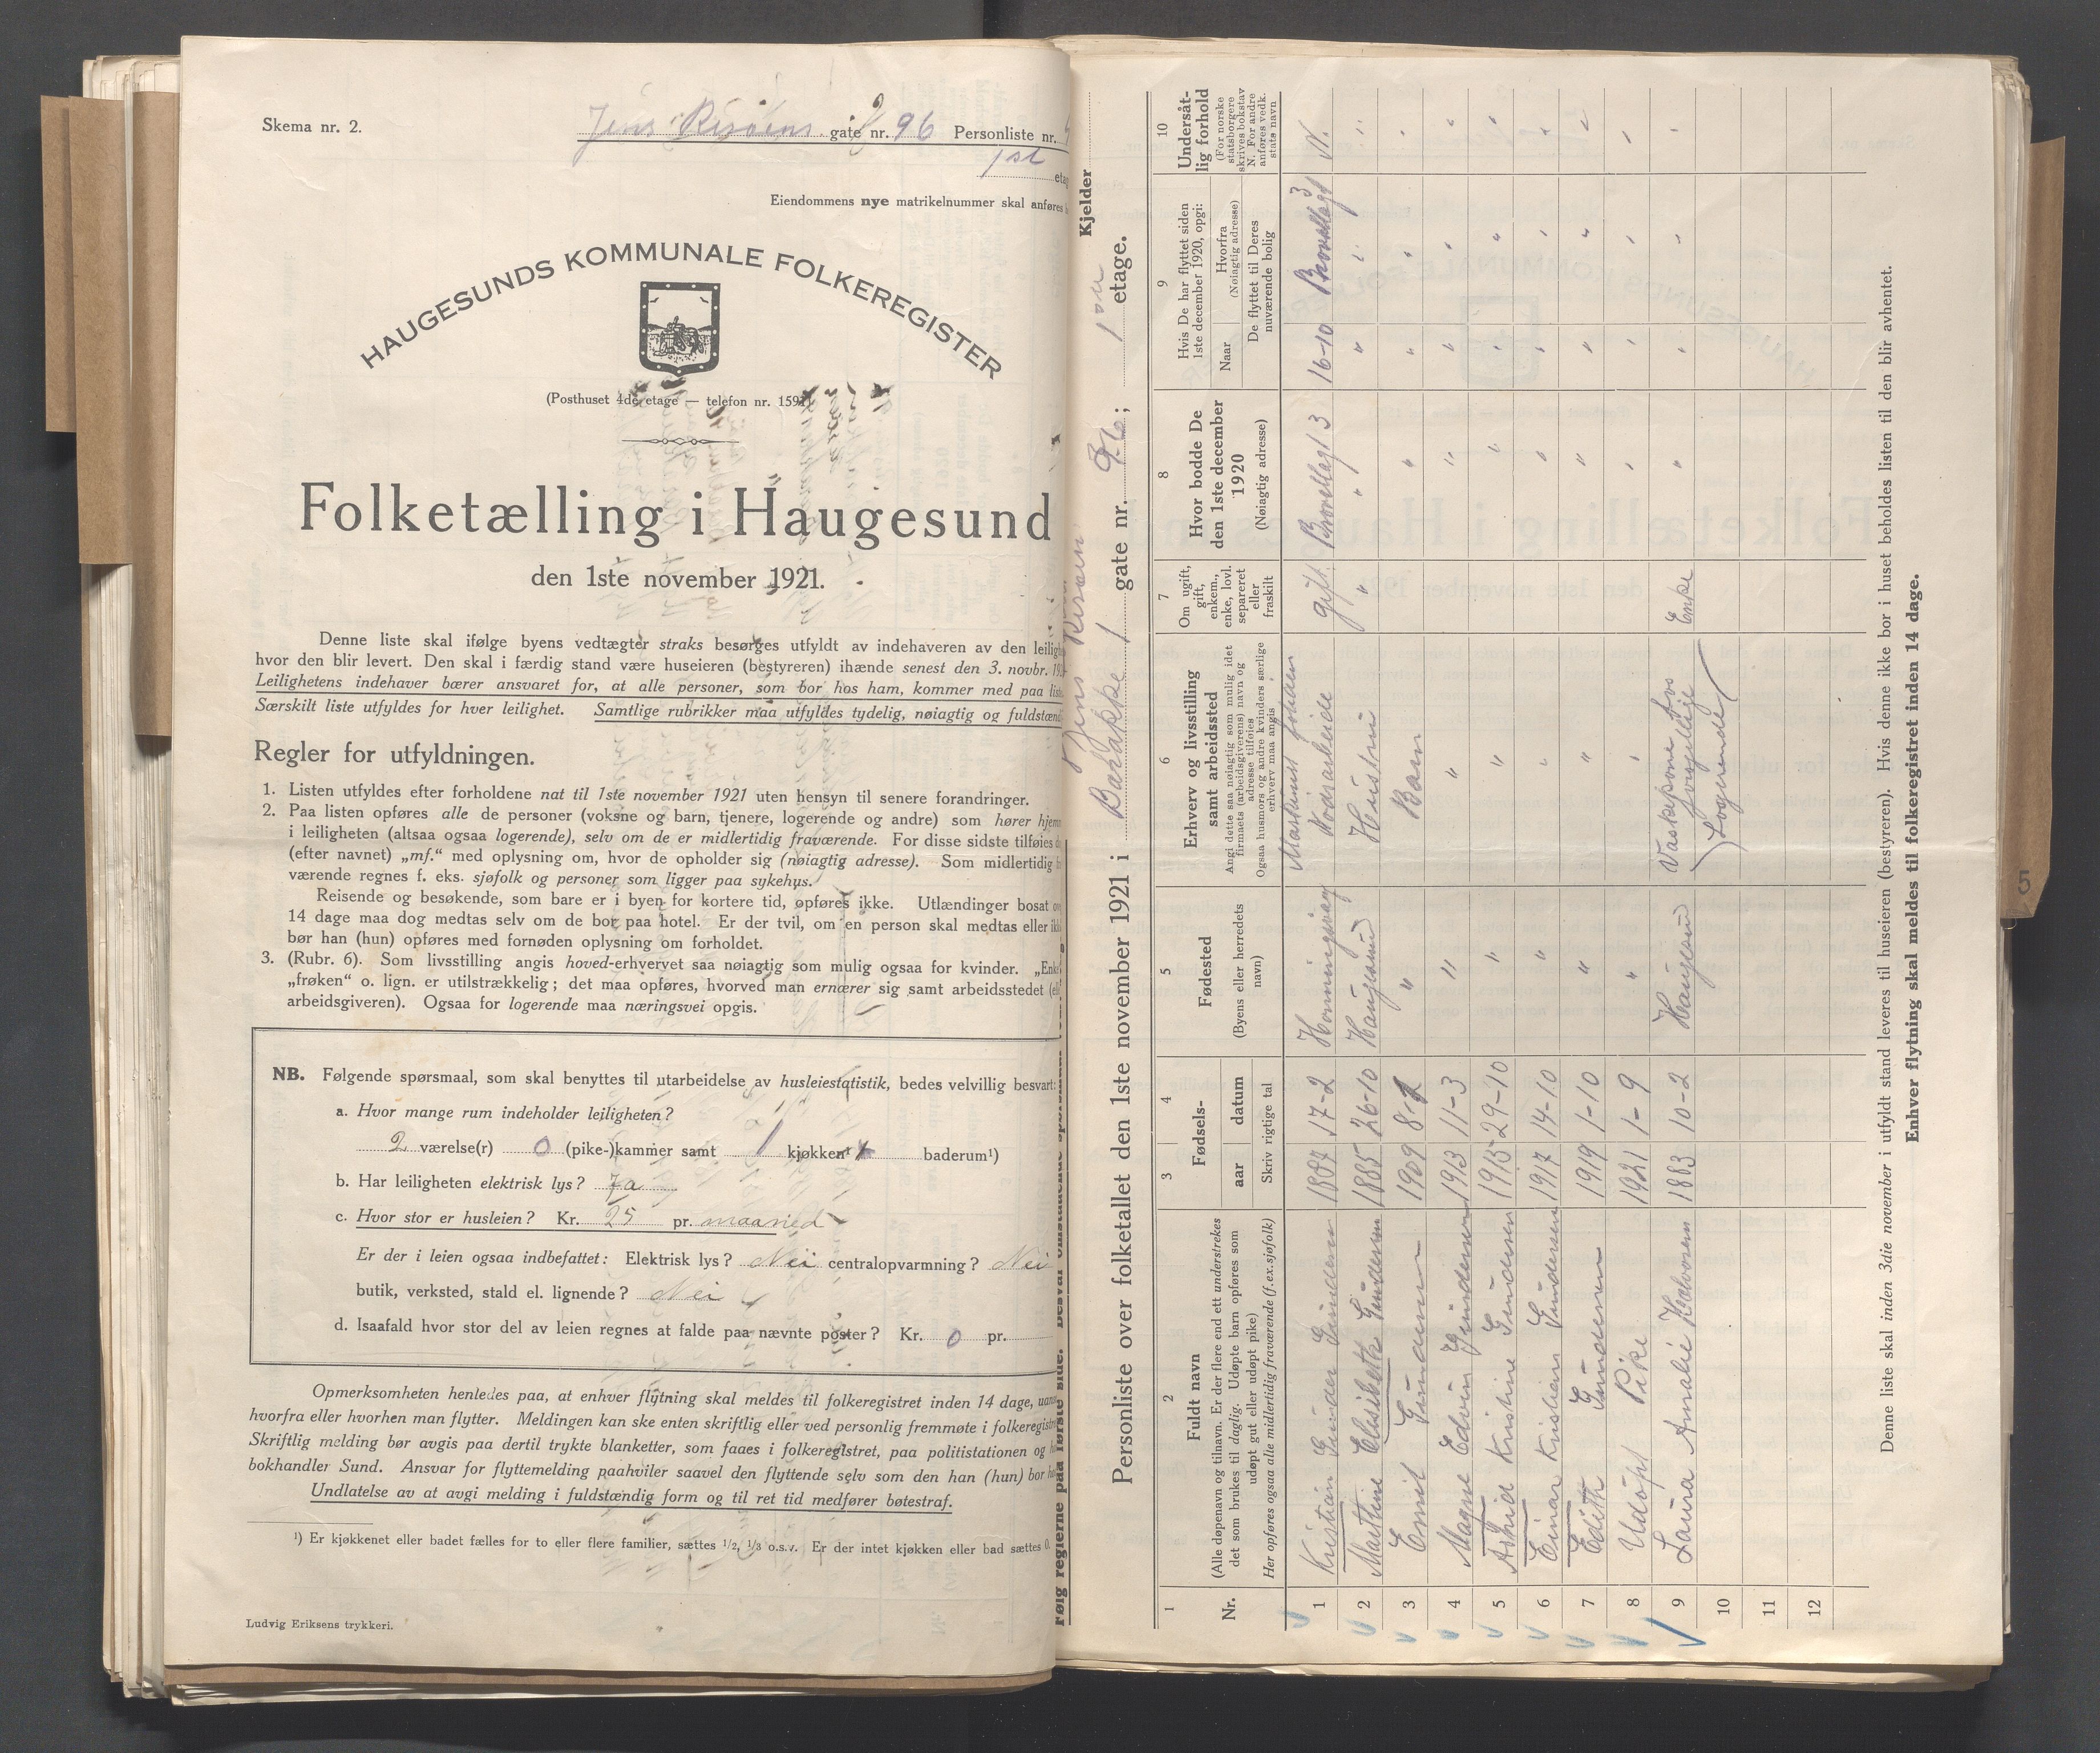 Skema nr. 2.
Jens Risøens gate nr. 96 Personliste nr.
1st etag
Eiendommens nye matrikelnummer skal anføres
HAUGESUNDS KOMMUNALE FOLKEREGISTER
(Posthuset 4de etage — telefon nr. 1597)
Folketælling i Haugesund
den 1ste november 1921.
Denne liste skal ifølge byens vedtægter straks besørges utfyldt av indehaveren av den leiligh
hvor den blir levert. Den skal i færdig stand være huseieren (bestyreren) ihænde senest den 3. novbr. 19
Leilighetens indehaver bærer ansvaret for, at alle personer, som bor hos ham, kommer med paa liste
Særskilt liste utfyldes for hver leilighet. Samtlige rubrikker maa utfyldes tydelig, nøiagtig og fuldstænd
Regler for utfyldningen.
1. Listen utfyldes efter forholdene nat til 1ste november 1921 uten hensyn til senere forandringer.
2. Paa listen opføres alle de personer (voksne og barn, tjenere, logerende og andre) som hører hjem
i leiligheten (altsaa ogsaa logerende), selv om de er midlertidig fraværende. For disse sidste tilføies d
(efter navnet) „mf.“ med oplysning om, hvor de opholder sig (nøiagtig adresse). Som midlertidig
værende regnes f. eks. sjøfolk og personer som ligger paa sykehus.
Reisende og besøkende, som bare er i byen for kortere tid, opføres ikke. Utlændinger bosat o
14 dage maa dog medtas selv om de bor paa hotel. Er der tvil, om en person skal medtas eller ik
bør han (hun) opføres med fornøden oplysning om forholdet.
3. (Rubr. 6). Som livsstilling angis hoved-erhvervet saa nøiagtig som mulig ogsaa for kvinder. „Enke
„frøken“ o. lign. er utilstrækkelig; det maa opføres, hvorved man ernærer sig samt arbeidsstedet (el
arbeidsgiveren). Ogsaa for logerende maa næringsvei opgis.
NB. Følgende spørsmaal, som skal benyttes til utarbeidelse av husleiestatistik, bedes velvillig besvart:
a. Hvor mange rum indeholder leiligheten?
2 værelse(r) 0 (pike-)kammer samt 1 kjøkken¹ baderum¹)
b. Har leiligheten elektrisk lys? Ja
c. Hvor stor er husleien? Kr. 25 pr. maaned
Er der i leien ogsaa indbefattet: Elektrisk lys? Nei centralopvarmning? Nei
butik, verksted, stald el. lignende? Nei
d. Isaafald hvor stor del av leien regnes at falde paa nævnte poster? Kr. 0 pr.
Opmerksomheten henledes paa, at enhver flytning skal meldes til folkeregistret inden 14 dage, uans
hvorfra eller hvorhen man flytter. Meldingen kan ske enten skriftlig eller ved personlig fremmøte i folkeregistr
Skriftlig melding bør avgis paa dertil trykte blanketter, som faaes i folkeregistret, paa politistationen og
bokhandler Sund. Ansvar for flyttemelding paahviler saavel den flyttende selv som den han (hun) bor h
Undlatelse av at avgi melding i fuldstændig form og til ret tid medfører bøtestraf.
¹) Er kjøkkenet eller badet fælles for to eller flere familier, sættes ¹/2, ¹/3 o.s.v. Er der intet kjøkken eller bad sættes 0.
Ludvig Eriksens trykkeri.
Kjelder
Jens Risøen
Personliste over folketallet den 1ste november 1921 i Barakke 1 gate nr. 96; 1ste etage.
1 2 3 4 5 6 7 8 9 10
Nr.
Fuldt navn
(Alle døpenavn og tilnavn. Er der flere end ett understrekes
det som brukes til daglig. Udøpte barn opføres som
udøpt gut eller udøpt pike)
Her opføres ogsaa alle midlertidig fraværende (f.ex.sjøfolk)
Fødsels-
aar datum
Skriv rigtige tal
Fødested
(Byens eller herredets
navn)
Erhverv og livsstilling
samt arbeidssted
Angi dette saa nøiagtig som mulig idet
firmaets (arbeidsgiverens) navn og
adresse tilføies
Ogsaa husmors og andre kvinders særlige
erhverv maa angis
Om ugift,
gift,
enkem.,
enke, lovl.
separeret
eller
fraskilt
Hvor bodde De
den 1ste december
1920
(Nøiagtig adresse)
Hvis De har flyttet siden
1ste december 1920, opgi:
Naar
Hvorfra
(Nøiagtig adresse)
De flyttet til Deres
nuværende bolig
Undersåt-
lig forhold
(For norske
statsborgere
skrives bokstav
N. For andre
anføres vedk.
stats navn
1 Kristian Gunder Gundersen 1887 17-2 Honningsvaag Johan gift 3 16-10 3 N.
2 Martine Elisibeth Gundersen 1885 26-10 Haugesund Hustru " " " " "
3 Emil Gundersen 1909 8- " Barn " " " "
4 Magne Edvin Gundersen 1913 11-3 " " " " " "
5 Astrid Kristine Gundersen 1915 29-10 " " " " " "
6 Einar Kristian Gundersen 1917 14-10 " " " " " "
7 Edith Gundersen 1919 1-10 " " " " " "
8 Udøpt Pike 1921 1-9 " " " " " "
9 Laura Amalie Halvorsen 1883 10-2 Haugesund Vaskekone hos Enke " " " "
(Logerende)
10
11
12
Denne liste skal inden 3die november i utfyldt stand leveres til huseieren (bestyreren). Hvis denne ikke bor i huset beholdes listen til den blir avhentet.
Enhver flytning skal meldes til folkeregistret inden 14 dage.
5